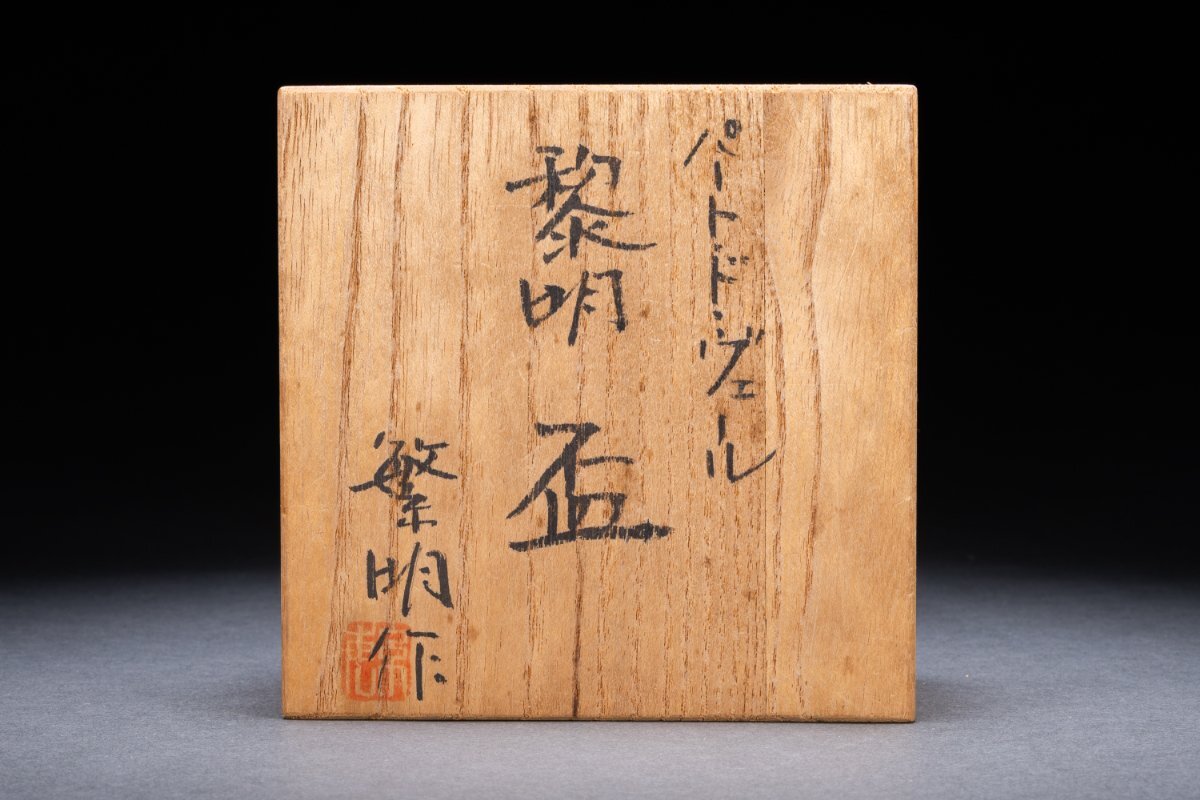 パートド・ヴェール
黎明 盃
繁明作